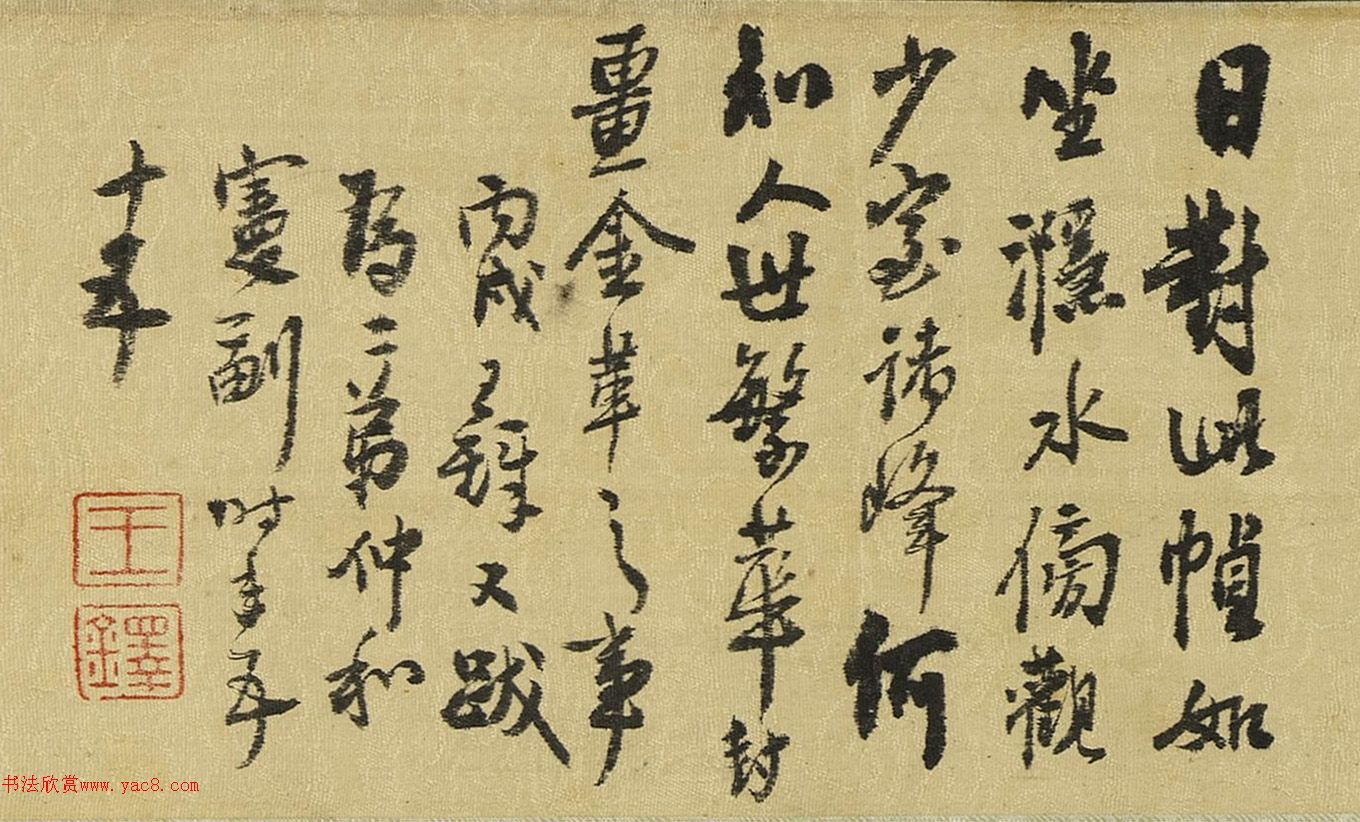 日對此幀如
坐水傍觀
少室諸峰何
知人世繁華封
畺金革之事
丙戌王鐸又跋
為二弟仲和
憲副時年五
十五
王
鐸
书法欣赏www.yac8.com